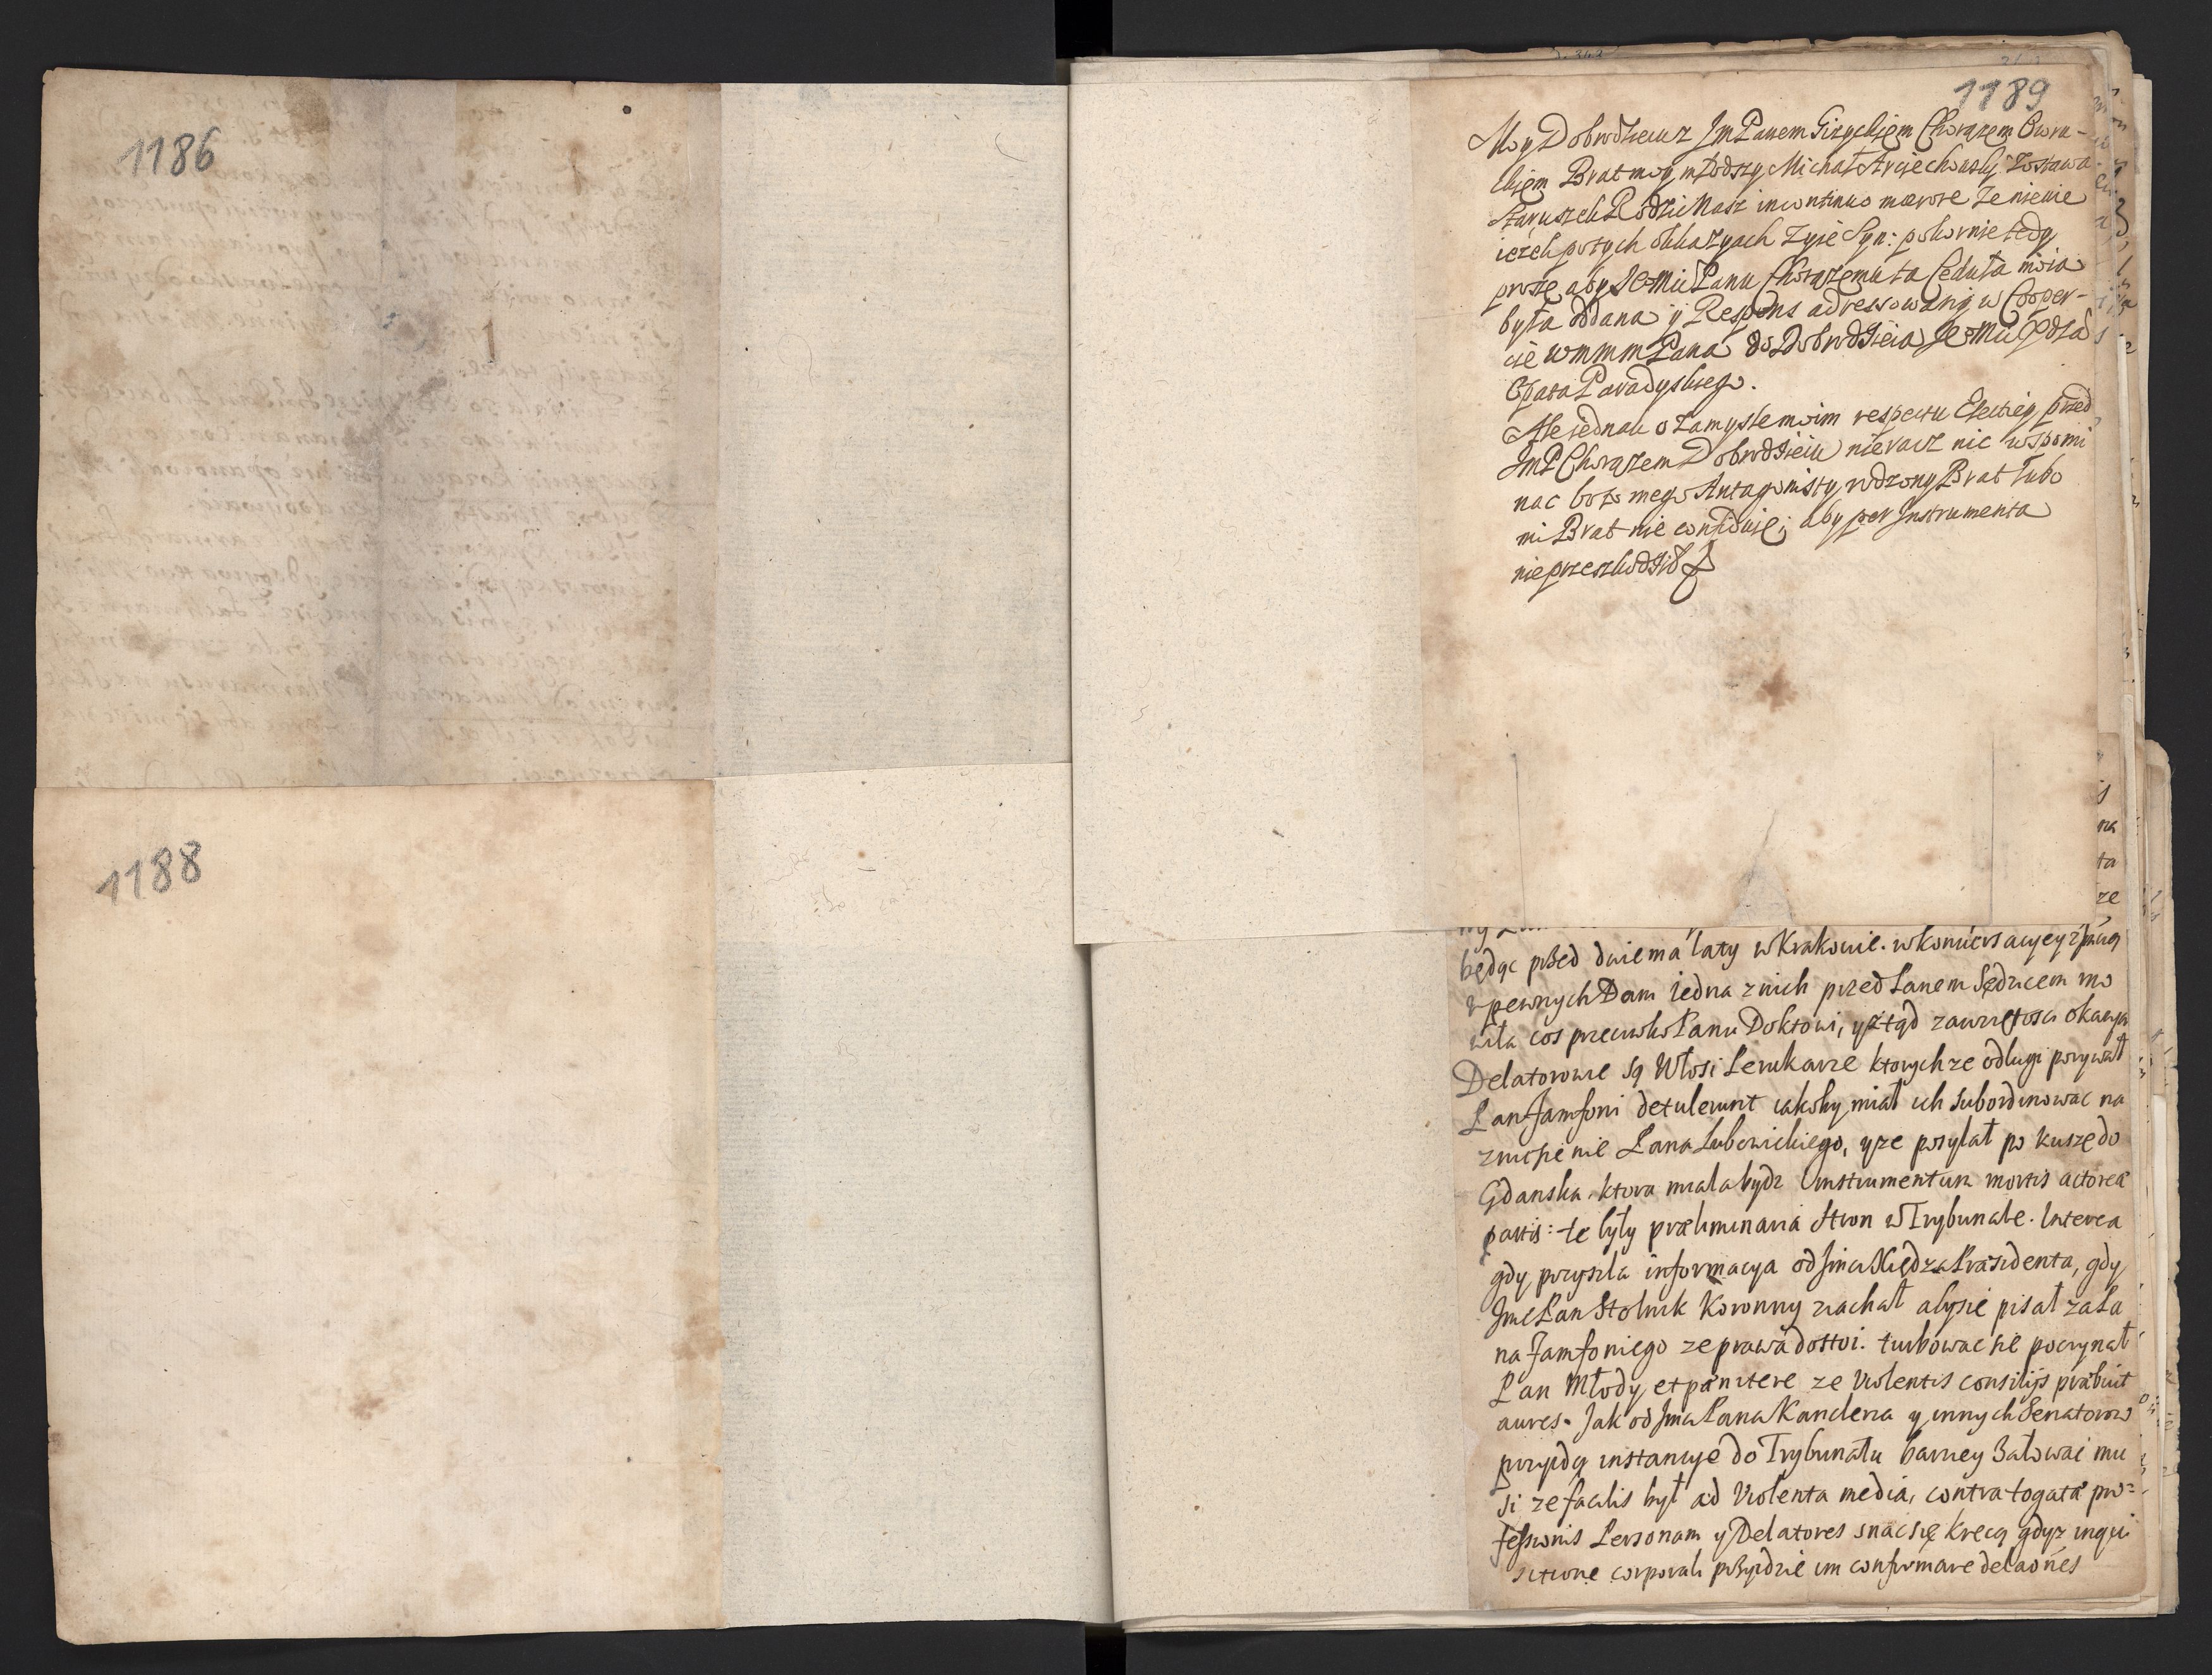 1186
1188
1189
Moy Dobrodzieiu z JmPanem Giżyckiem Chorążem Owru-
ckiem Brat moy młodszy Michał Arciechowsky zostawa
Staruszek Rodzic Nasz in continuo mærore że niewie
ieżeli po tych okkazyach żyie Syn: pokornie tedy
proszę aby JeoMci Panu Chorążemu ta Ceduła moia
była oddana y Respons adressowany w Cooper-
cie WMMM Pana do Dobrodzieia JeoMci Xdza
Opata Paradyskiego.
Ale iednak o zamysle moim respectu Elekciey przed
JmP Chorążem Dobrodzieiu nieracz nic wspomi
nac bo to mego Antagonisty rodzony Brat lubo
mi Brat nie confiduie; aby per Instrumenta
nieprzeszkodził
będąc przed dwiema laty w Krakowie. w konwersacyey
z pewnych Dam iedna z nich przed Panem Sędzicem mo
wiła cos przeciwko Panu Doktowi, y ztąd zawziętosci okazya
Delatorowie są Włosi Perukarze ktorych ze o długi porywał
Pan Jamfoni detulerunt iakoby miał ich subordinowac na
zniesienie Pana Lubowickiego, y ze posyłał po kuszę do
Gdanska. ktora miala bydz instrumentum mortis actoreæ
partis: te były præliminaria stron w Trybunale. Interea
gdy przyszla informacya od Jmci Xiędza Præsidenta, gdy
Jmc Pan Stolnik Koronny ziachał aby sie pisał za Pa
na Jamfoniego ze prawa dostoi. turbowac sie poczynał
Pan Młody, et pænitere ze violentis consilijs præbuit
aures. Jak od Jmci Pana Kanclerza y innych Senatorow
przyidą instancye do Trybunału barziey załowac mu
si ze facilis był ad violenta media, contra togatæ pro=
fessionis Personam y Delatores snac się kręcą gdyz inqui
sitione corporali przyidzie im confirmare delaones